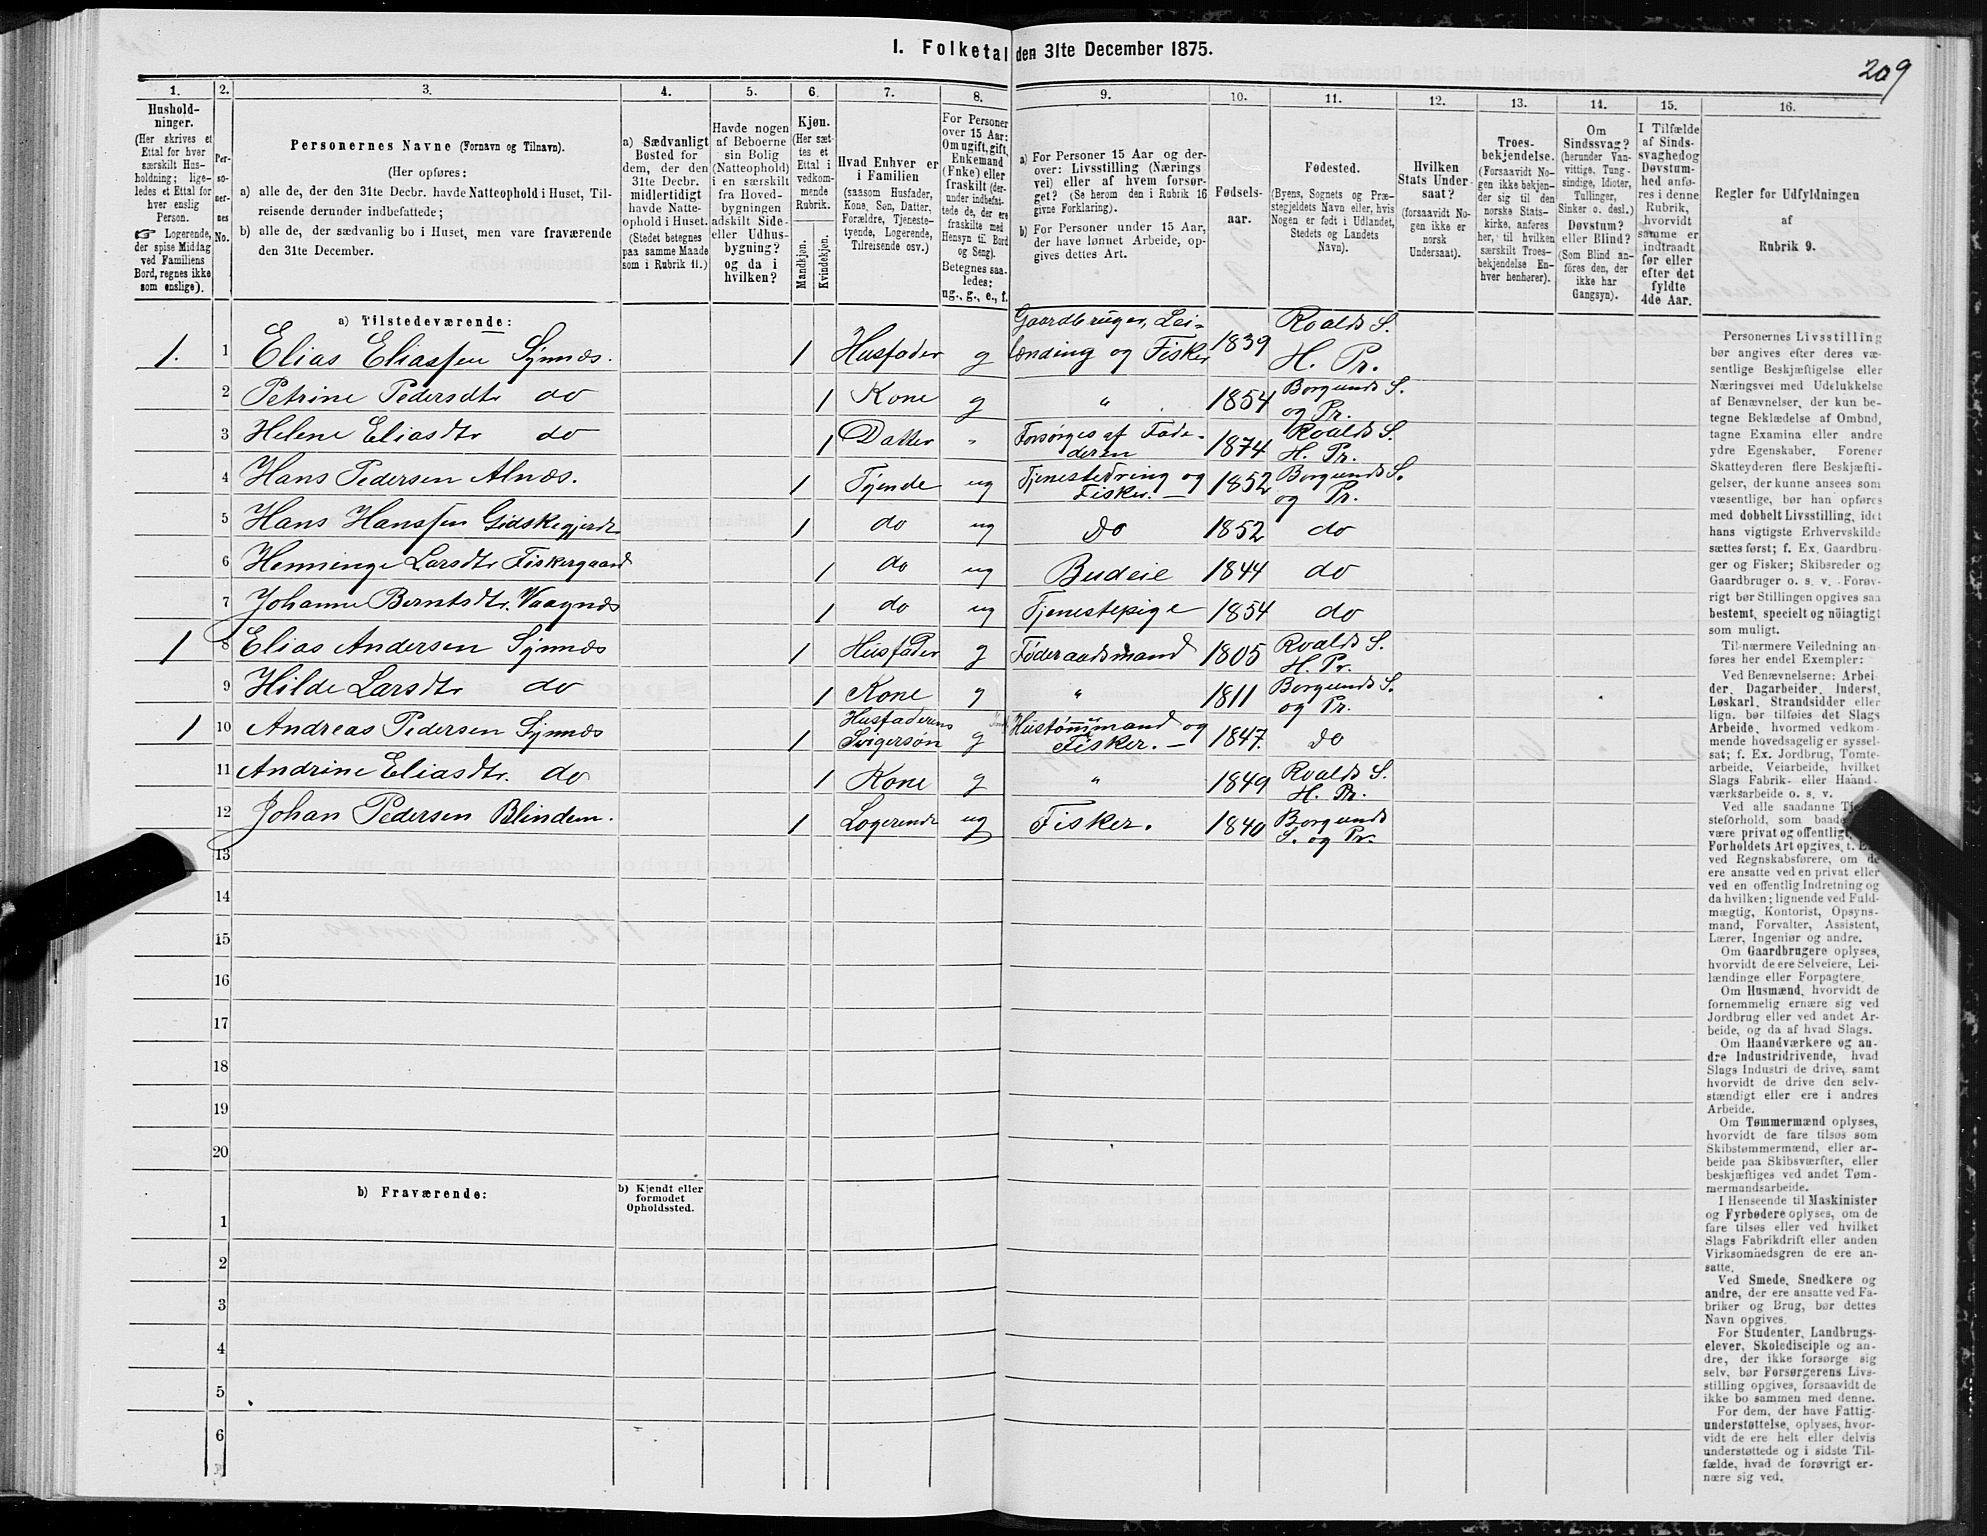 I. Folketal den 31te December 1875.
209
1. 2. 3. 4. 5. 6. 7. 8. 9. 10. 11. 12. 13. 14. 15. 16.
Hushold-
ninger.
(Her skrives et
Ettal for hver
særskilt Hus-
holdning; lige-
ledes et Ettal for
hver enslig
Person.
☞ Logerende,
der spise Middag
ved Familiens
Bord, regnes ikke
som enslige).
Per-
so-
ner-
nes
No.
Personernes Navne (Fornavn og Tilnavn).
(Her opføres:
a) alle de, der den 31te Decbr. havde Natteophold i Huset, Til-
reisende derunder indbefattede;
b) alle de, der sædvanlig bo i Huset, men vare fraværende
den 31te December.
a) Sædvanligt
Bosted for
dem, der den
31te Decbr.
midlertidigt
havde Natte-
ophold i Huset.
(Stedet betegnes
paa samme Maade
som i Rubrik 11.)
Havde nogen
af Beboerne
sin Bolig
(Natteophold)
i en særskilt
fra Hoved-
bygningen
adskilt Side-
eller Udhus-
bygning?
og da i
hvilken?
Kjøn.
(Her sæt-
tes et
Ettal i
vedkom-
mende
Rubrik.
Mandkjøn.
Kvindekjøn.
Hvad Enhver er
i Familien
(saasom Husfader,
Kone, Søn, Datter,
Forældre, Tjeneste-
tyende, Logerende,
Tilreisende osv.)
For Personer
over 15 Aar:
Om ugift, gift,
Enkemand
(Enke) eller
fraskilt (der-
under indbefat-
tede de, der ere
fraskilte med
Hensyn til Bord
og Seng).
Betegnes saa-
ledes:
ug., g., e., f.
a) For Personer 15 Aar og der-
over: Livsstilling (Nærings-
vei) eller af hvem forsør-
get? (Se herom den i Rubrik 16
givne Forklaring).
b) For Personer under 15 Aar,
der have lønnet Arbeide, op-
gives dettes Art.
Fødsels-
aar.
Fødested.
(Byens, Sognets og Præ-
stegjeldets Navn eller, hvis
Nogen er født i Udlandet,
Stedets og Landets
Navn).
Hvilken
Stats Under-
saat?
(forsaavidt No-
gen ikke er
norsk
Undersaat).
Troes-
bekjendelse.
(Forsaavidt No-
gen ikke bekjen-
der sig til den
norske Stats-
kirke, anføres
her, til hvilken
særskilt Troes-
bekjendelse En-
hver henhører).
Om
Sindssvag?
(herunder Van-
vittige, Tung-
sindige, Idioter,
Tullinger,
Sinker o. desl.)
Døvstum?
eller Blind?
(Som Blind an-
føres den, der
ikke har
Gangsyn).
I Tilfælde
af Sinds-
svaghed og
Døvstum-
hed anfø-
res i denne
Rubrik,
hvorvidt
samme er
indtraadt
før eller
efter det
fyldte
4de Aar.
Regler for Udfyldningen
af
Rubrik 9.
a) Tilstedeværende:
1. 1 Elias Eliassen Synnæs. 1 Husfader g Gaardbruger, Lei-lænding og Fisker 1839 Roalds S. H. Pr.
2 Petrine Pedersdtr do 1 Kone g " 1854 Borgunds S. og Pr.
3 Helene Eliasdtr do 1 Datter " Forsørges af Fade-deren 1874 Roalds S. H. Pr.
4 Hans Pedersen Alnæs. 1 Tyende ug Tjenestedreng og Fisker. — 1852 Borgunds S. og Pr.
5 Hans Hanssen Gidskegjerde 1 do ug Do 1852 do
6 Henninge Larsdtr Fiskergaard 1 do ug Budeie 1844 do
7 Johanne Berntsdtr. Vaagnæs 1 do ug Tjenestepige 1854 do
1 8 Elias Andersen Synnæs 1 Husfader g Føderaadsmand 1805 Roalds S. H. Pr.
9 Hilde Larsdtr do 1 Kone g " 1811 Borgunds S. og Pr.
1 10 Andreas Pedersen Synnæs 1 Husfaderens Svigersøn g Hustømmermand og Fisker. — 1847. do
11 Andrine Eliasdtr. do 1 Kone g " 1849 Roalds S. H. Pr.
12 Johan Pedersen Blindem. 1 Logerende ug Fisker. 1840 Borgunds S. og Pr.
13
14
15
16
17
18
19
20
b) Fraværende:
b) Kjendt eller
formodet
Opholdssted.
1
2
3
4
5
6
Personernes Livsstilling
bør angives efter deres væ-
sentlige Beskjæftigelse eller
Næringsvei med Udelukkelse
af Benævnelser, der kun be-
tegne Beklædelse af Ombud,
tagne Examina eller andre
ydre Egenskaber. Forener
Skatteyderen flere Beskjæfti-
gelser, der kunne ansees som
væsentlige, bør han opføres
med dobbelt Livsstilling, idet
hans vigtigste Erhvervskilde
sættes først; f. Ex. Gaardbru-
ger og Fisker; Skibsreder og
Gaardbruger o. s. v. Forøv-
rigt bør Stillingen opgives saa
bestemt, specielt og nøiagtigt
som muligt.
Til nærmere Veiledning an-
føres her endel Exempler:
Ved Benævnelserne: Arbei-
der, Dagarbeider, Inderst,
Løskarl, Strandsidder eller
lign. bør tilføies det Slags
Arbeide, hvormed vedkom-
mende hovedsagelig er syssel-
sat; f. Ex. Jordbrug, Tomte-
arbeide, Veiarbeide, hvilket
Slags Fabrik- eller Haand-
værksarbeide o. s. v.
Ved alle saadanne
steforhold, som baade
være privat og offentligt,
Forholdets Art opgives, t. Ex.
ved Regnskabsførere, om de
ere ansatte ved en privat eller
ved en offentlig Indretning og
da hvilken; lignende ved Fuld-
mægtig, Kontorist, Opsyns-
mand, Forvalter, Assistent,
Lærer, Ingeniør og andre.
Om Gaardbrugere oplyses,
hvorvidt de ere Selveiere, Lei-
lændinge eller Forpagtere.
Om Husmænd, hvorvidt de
fornemmelig ernære sig ved
Jordbrug eller ved andet Ar-
beide, og da af hvad Slags.
Om Haandværkere og an-
dre Industridrivende, hvad
Slags Industri de drive, samt
hvorvidt de drive den selv-
stændigt eller ere i andres
Arbeide.
Om Tømmermænd oplyses,
hvorvidt de fare tilsøs som
Skibstømmermænd, eller ar-
beide paa Skibsværfter, eller
beskjæftiges ved andet Tøm-
mermandsarbeide.
I Henseende til Maskinister
og Fyrbødere oplyses, om de
fare tilsøs eller ved hvilket
Slags Fabrikdrift eller anden
Virksomhedsgren de ere an-
satte.
Ved Smede, Snedkere og
andre, der ere ansatte ved Fa-
briker og Brug, bør dettes
Navn opgives.
For Studenter, Landbrugs-
elever, Skoledisciple og an-
dre, der ikke forsørge sig
selv, bør Forsørgerens Livs-
stilling opgives, forsaavidt de
ikke bo sammen med denne.
For dem, der have Fattig-
understøttelse, oplyses, hvor-
vidt de ere helt eller delvis
understøttede og i sidste Til-
fælde, hvad de forøvrigt er-
nære sig ved.